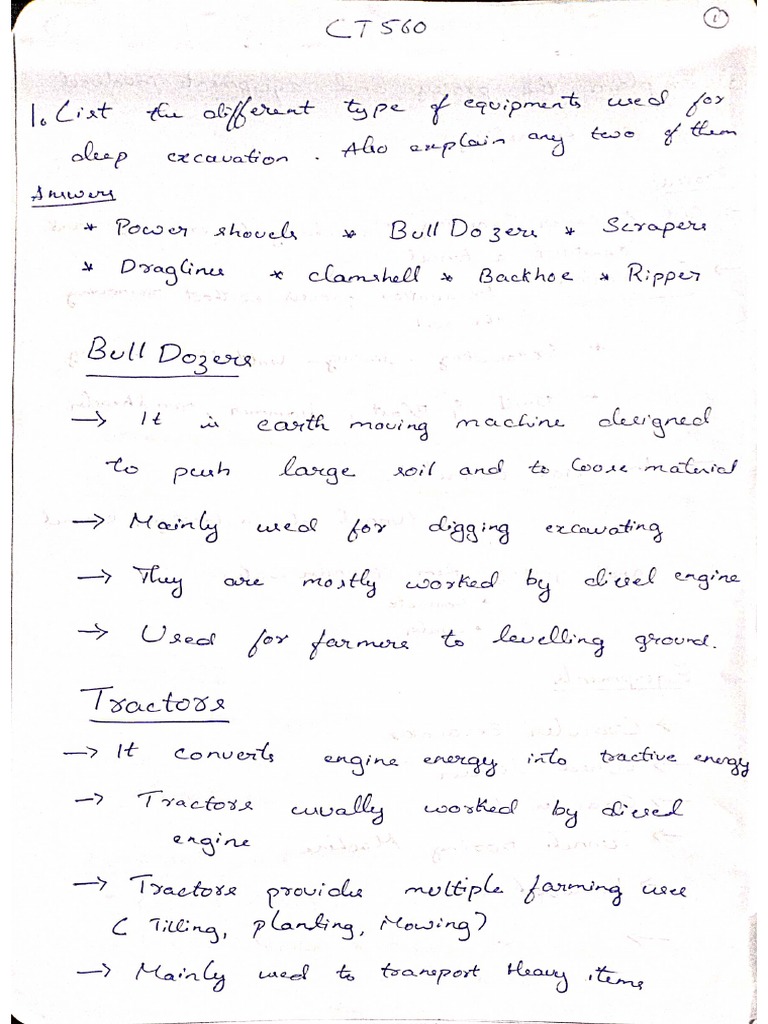 CT 560
1
1. List the different type of equipments used for
deep excavation. Also explain any two of them
Answers
* Power shovels * Bull Dozers * Scrapers
* Draglines * clamshell * Backhoe * Ripper
Bull Dozers
→ It is earth moving machine designed
to push large soil and to loose material
→ Mainly used for digging excavating
→ They are mostly worked by diesel engine
→ Used for farmers to levelling ground.
Tractors
→ It converts engine energy into tractive energy
→ Tractors usually worked by diesel
engine
→ Tractors provides multiple farming uses
( Tilling, planting, Mowing)
→ Mainly used to transport Heavy items